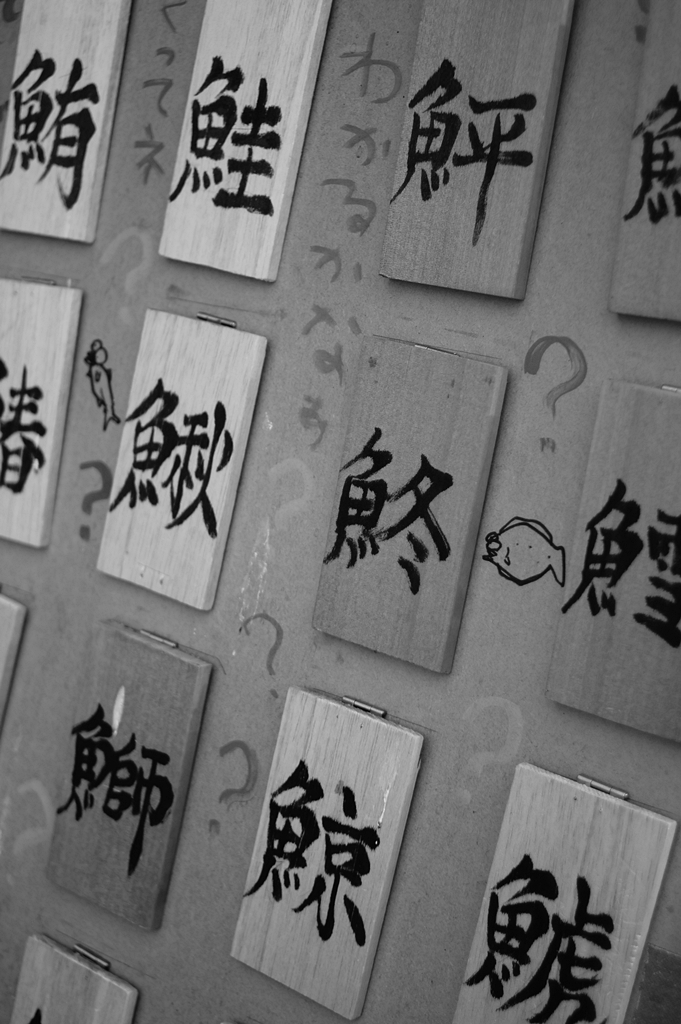 鮪 鮭 鮃
ってネ
わかるかなぁ
?
鰆 鰍 鮗 鱈
?
?
鰤 鯨 鯱
?
?
?
?